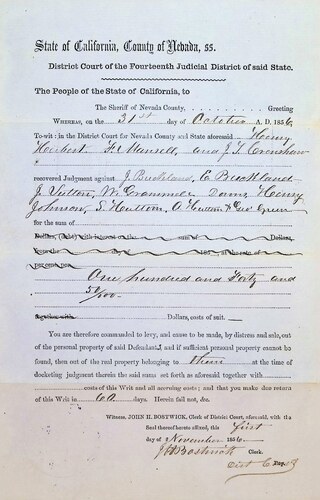 State of California, County of Nevada, ss.
District Court of the Fourteenth Judicial District of said State.
The People of the State of California, to
The Sheriff of Nevada County, . . . . . . . . Greeting
WHEREAS, on the 31st day of October A. D. 1856,
To-wit: in the District Court for Nevada County and State aforesaid Henry
Herbert F. Mansell, and J. L. Crenshaw
recovered Judgment against J. Buckland, E Buckland
J. Sutton, W. Henry
Johnson, S. Hutton, A Hutton & Geo Green
for the sum of
Dollars, (Debt) with interest on the sum of Dollars,
from the day of 185 , at the rate of
per cent per
One hundred and Forty and
50/100
Together with Dollars, costs of suit.
You are therefore commanded to levy, and cause to be made, by distress and sale, out
of the personal property of said Defendant , and if sufficient personal property cannot be
found, then out of the real property belonging to them at the time of
docketing judgment therein the said sum set forth as aforesaid together with
costs of this Writ and all accruing costs; and that you make due return
of this Writ in 60 days. Herein fail not, &c.
Witness, JOHN H. BOSTWICK, Clerk of District Court, aforesaid, with the
Seal thereof hereto affixed, this first
day of November 1856.
J H Bostwick Clerk.
Dep.